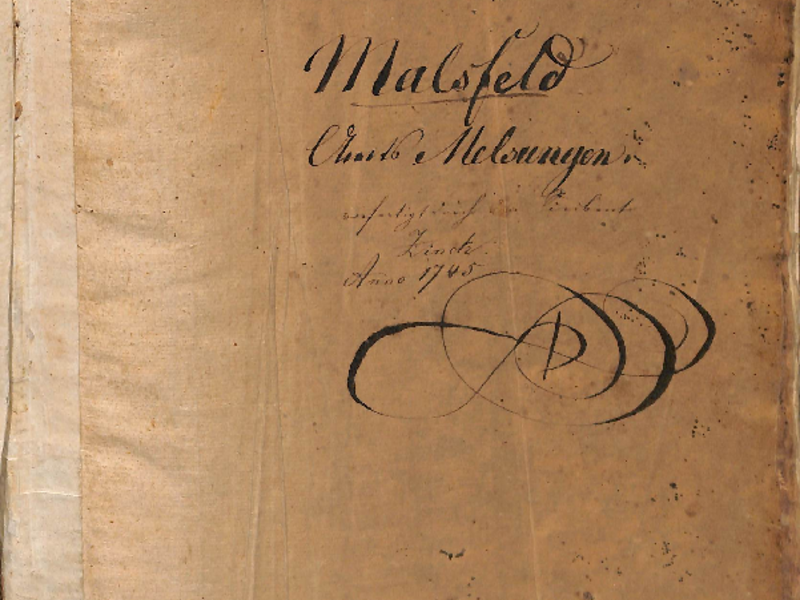 Malsfeld
Ambts Melsungen.
verfertigt durch
Zinck.
Anno 1745